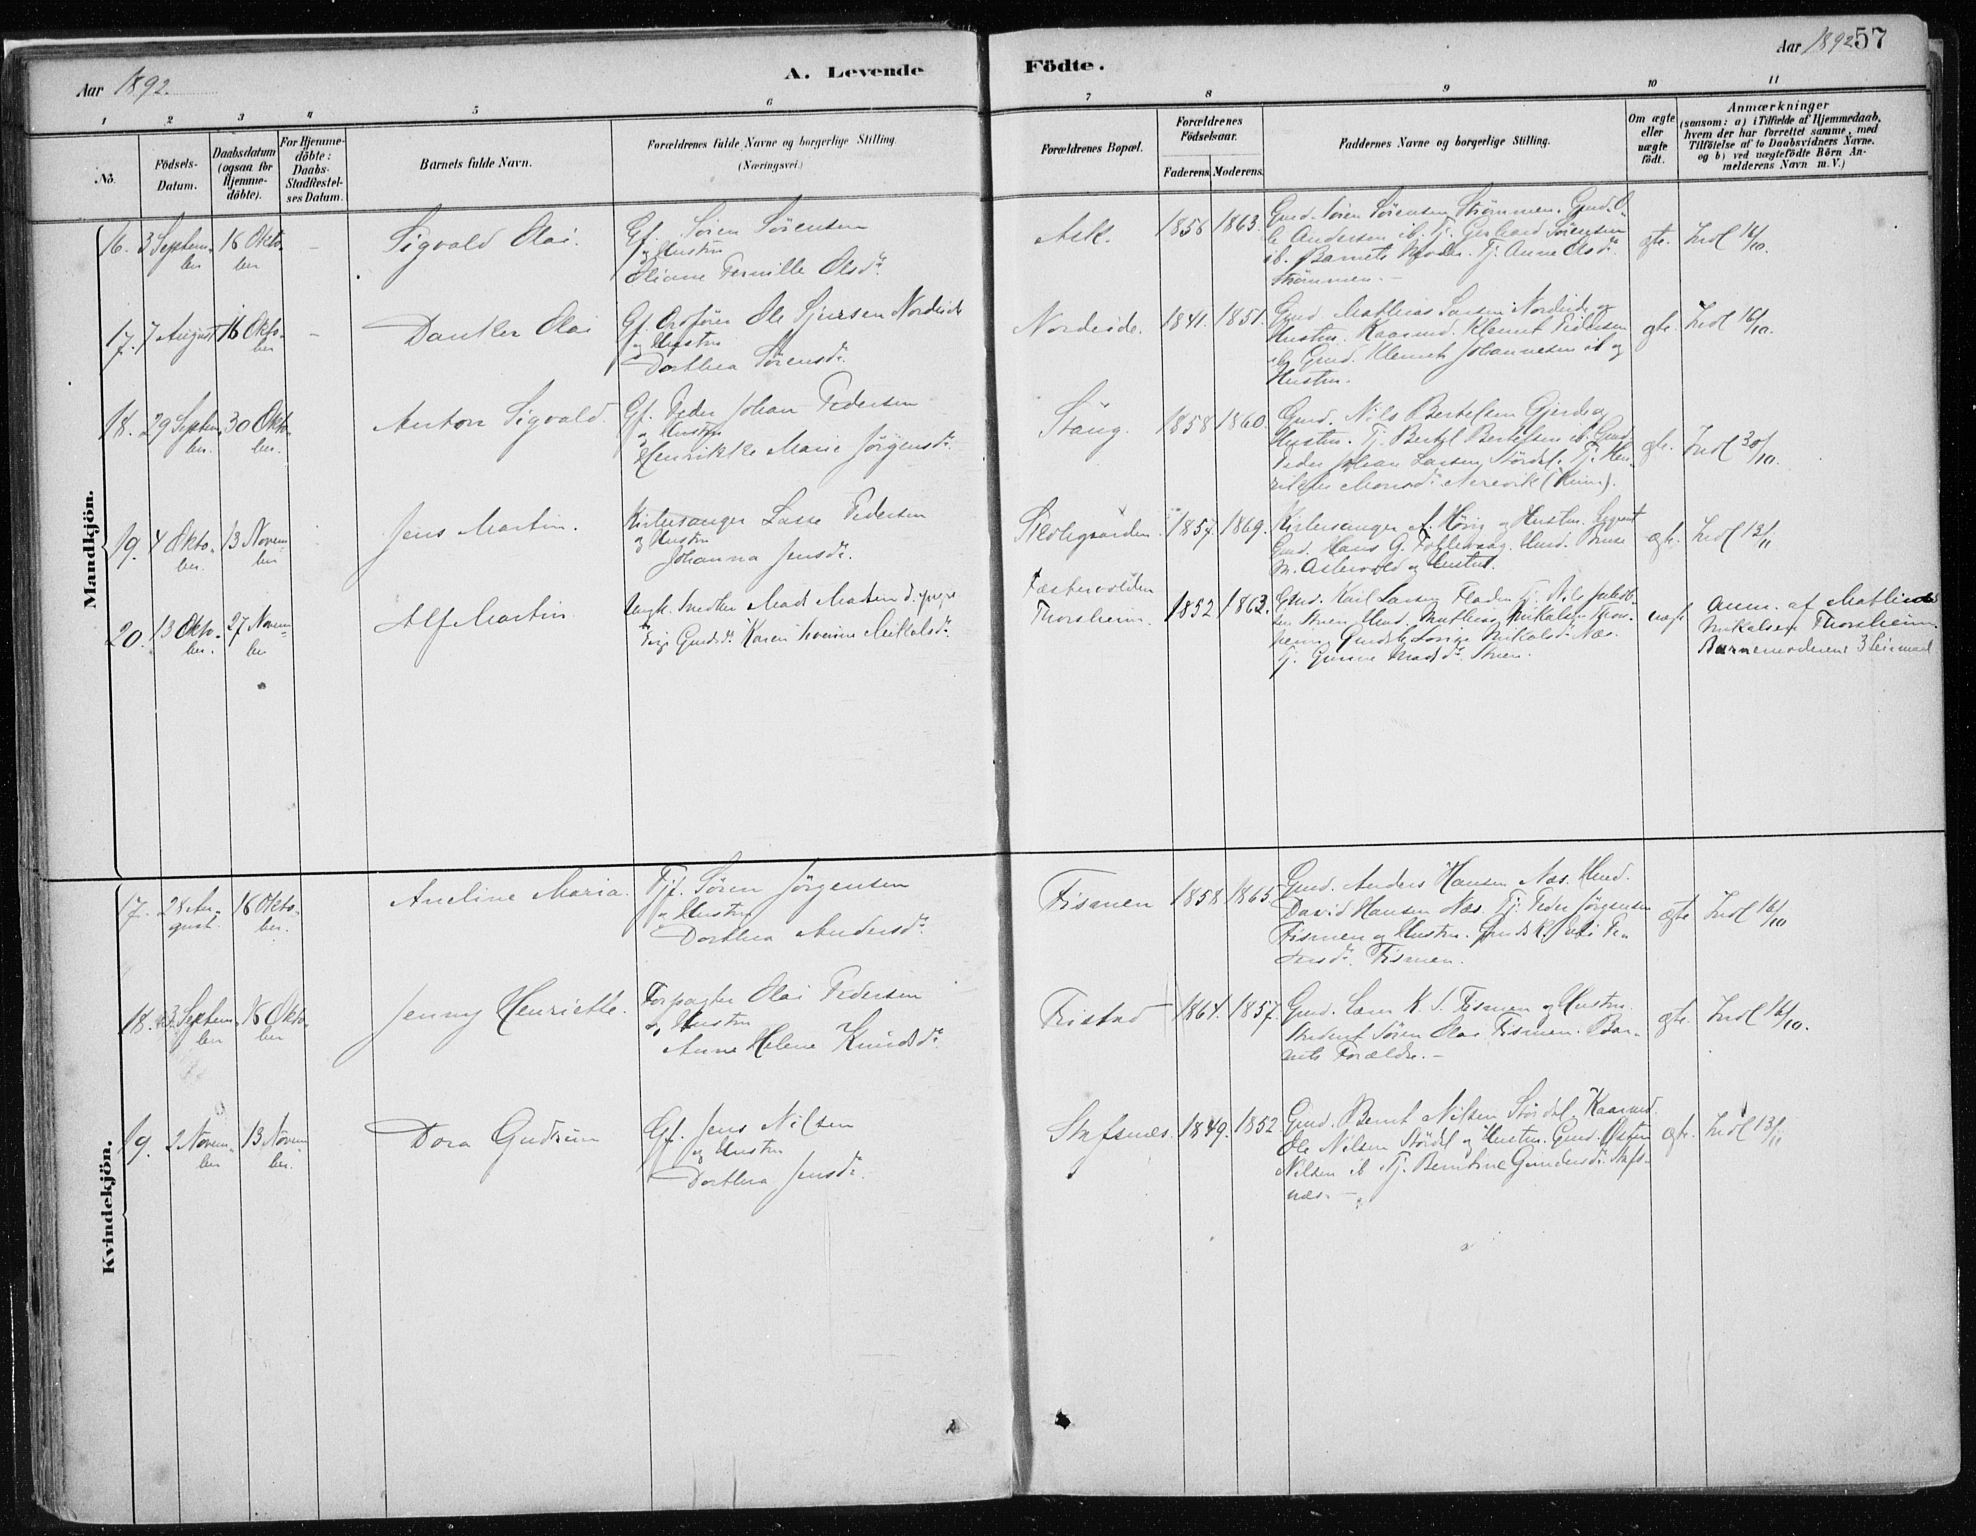 Aar 1892.
A. Levende
Födte.
Aar 1892 57
1 2 3 4 5 6
7 8 9 10 11
No.
Födsels-Datum.
Daabsdatum (ogsaa for Hjemme-döbte).
For Hjemme-döbte: Daabs-Stadfæstel-ses Datum.
Barnets fulde Navn.
Forældrenes fulde Navne og borgerlige Stilling (Næringsvei.)
Forældrenes Bopæl.
Forældrenes Födselsaar.
Faderens. Moderens.
Faddernes Navne og borgerlige Stilling.
Om ægte eller uægte födt.
Anmærkninger
(saasom: a) i Tilfælde af Hjemmedaab, hvem der har forrettet samme, med Tilföielse af to Daabsvidners Navne. og b) ved uægtefödte Börn An-melderens Navn m. V.)
Mandkjön.
16. 3 Septem-ber 16 Okto-ber - Sigvald Olai.
Gf. Sören Sörensen
og Hustru
Oliane Pernille Olsdr.
Ask. 1856 1863.
Gmd. Sören Sörensen Strömmen. Gmd. O-
le Andersen ib. Tj. Gerhard Sörensen
ib. Barnets Moder. Tj. Anne Olsdr.
Strömmen. -
gte. Indl 16/10.
17. 7 August 16 Okto-ber - Danker Olai
Gf. Ordförer Ole Sjursen Nordeide
og Hustru
Dorthea Sörensdr.
Nordeide. 1841. 1851.
Gmd. Mathias Larsen Nordeide og
Hustru. Kaarmd. Klemet
Gmd. Klemet Johannesen ib og
Hustru.
gte. Indl 16/10.
18. 29 Septem-ber. 30 Okto-ber. Anton Sigvald.
Gf. Peder Johan Pedersen
og Hustru
Henrikke Marie Jörgensdr.
Stang. 1858 1860.
Gmd. Nils Bertelsen Gjerde og
Hustru. Tj. Bertel Bertelsen ib. Gmd.
Peder Johan Larsen Stördal. Tj. Hen-
Monsdr.
gte. Indl 30/10.
19. 4 Okto-ber. 13 Novem-ber Jens Martin.
Kirkesanger Lasse Pedersen
og Hustru
Johanna Jensdr.
1857. 1869.
Kirkesanger A. Hövig og Hustru.
Gmd. Hans G.
M. Austevold og Hustru.
ægte. Indl 13/11
20. 13 Okto-ber. 27 Novem-ber Alf Martin
Ungk. Snedker Mads Madsen d. yngre
Pige Karen Mikkalsdr.
Thorsheim. 1852 1863.
Gmd. Karl Larsen
Mathias Mikalsen Thors-
heim Mikalsdr. Næs.
Tj. Gunne Madsdr.
uægte
Anm. af Mathias
Mikalsen Thorsheim.
Barnemoderens 3 Leiermaal
Kvindekjön.
17. 28 Au-gust. 16 Okto-ber. Aneline Maria.
Tjf. Sören Jörgensen
og Hustru
Dorthea Andersdr.
Tismen 1858 1865.
Gmd. Anders Hansen Næs. Hmd.
David Hansen Næs. Tj. Peder Jörgensen
Tismen og Hustru. Gmdk.
Tismen.
ægte Indl 16/10
18. 3 Septem-ber 16 Okto-ber Jenny Henriette.
Forpagter Olai Pedersen
og Hustru
Anne Helene Knudsdr.
1864. 1857.
Gmd. Lars K. S. Tismen og Hustru.
Student Sören Olai Tismen. Bar-
nets Forældre. -
gte. Indl 16/10.
19. 2 Novem-ber 13 Novem-ber. Dora Gudrun
Gf. Jens Nilsen
og Hustru
Dorthea Jensdr.
Stafsnæs. 1849. 1852
Gmd. Bernt Nilsen Stördal. Kaarmd.
Ole Nilsen Stördal og Hustru. Gmd. Östen
Nilsen ib. Tj. Berntine Gundersdr. Stafs-
næs. -
ægte. Indl 13/11